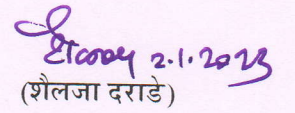 2.1.2023
(शैलजा दराडे)